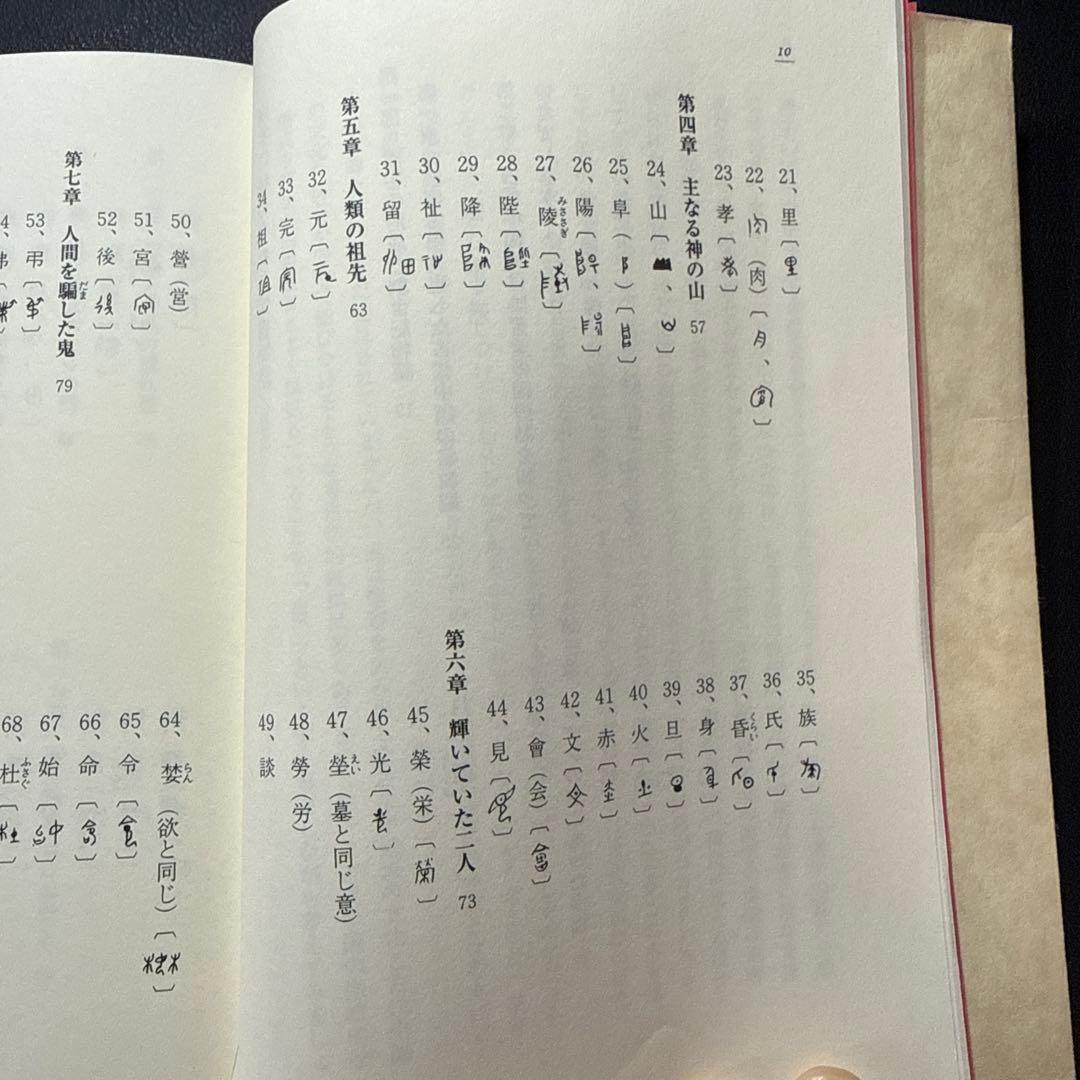 10
21、里〔〕
22、肉(肉)〔月、〕
23、孝〔〕
第四章 主なる神の山 57
24、山〔、〕
25、阜(阝)〔〕
26、陽〔、〕
27、陵〔〕
みささぎ
28、陛〔〕
29、降〔〕
30、祉〔〕
31、留〔〕
第五章 人類の祖先 63
32、元〔〕
33、完〔〕
34、祖〔〕
35、族〔〕
36、氏〔〕
37、昏〔〕
くらい
38、身〔〕
39、旦〔〕
40、火〔〕
41、赤〔〕
42、文〔〕
43、會(会)〔〕
44、見〔〕
第六章 輝いていた二人 73
45、榮(栄)〔〕
46、光〔〕
47、塋(墓と同じ意)
えい
48、勞(労)
49、談
50、營(営)
51、宮〔〕
52、後〔〕
第七章 人間を騙した鬼 79
だま
53、弔〔〕
4、弗〔〕
64、婪(欲と同じ)〔〕
らん
65、令〔〕
66、命〔〕
67、始〔〕
68、杜〔〕
ふさぐ